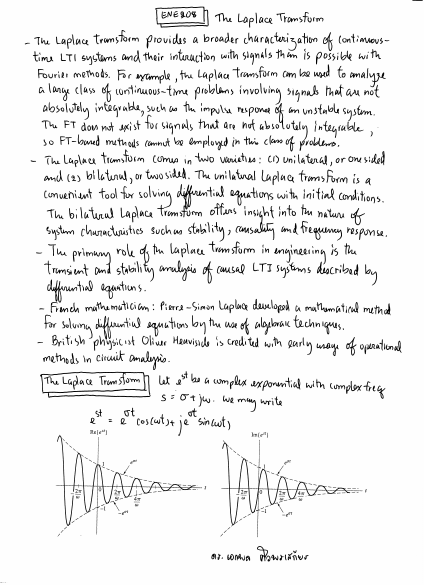 ENE208 The Laplace Transform
- The Laplace Transform provides a broader characterization of continuous-
time LTI systems and their interaction with signals than is possible with
Fourier methods. For example, the Laplace transform can be used to analyze
a large class of continuous-time problems involving signals that are not
absolutely integrable, such as the impulse response of an unstable system.
The FT does not exist for signals that are not absolutely integrable,
so FT-based methods cannot be employed in this class of problems.
- The Laplace Transform comes in two varieties: (1) unilateral, or one sided
and (2) bilateral, or two sided. The unilateral Laplace transform is a
convenient tool for solving differential equations with initial conditions.
The bilateral Laplace Transform offers insight into the nature of
system characteristics such as stability, causality and frequency response.
- The primary role of the Laplace transform in engineering is the
transient and stability analysis of causal LTI systems described by
differential equations.
- French mathematician: Pierre-Simon Laplace developed a mathematical method
for solving differential equations by the use of algebraic techniques.
- British physicist Oliver Heaviside is credited with early usage of operational
methods in circuit analysis.
The Laplace Transform Let e^st be a complex exponential with complex freq
s = σ + jω. we may write
e^st = e^σt cos(ωt) + j e^σt sin(ωt)
Re{e^st} Im{e^st}